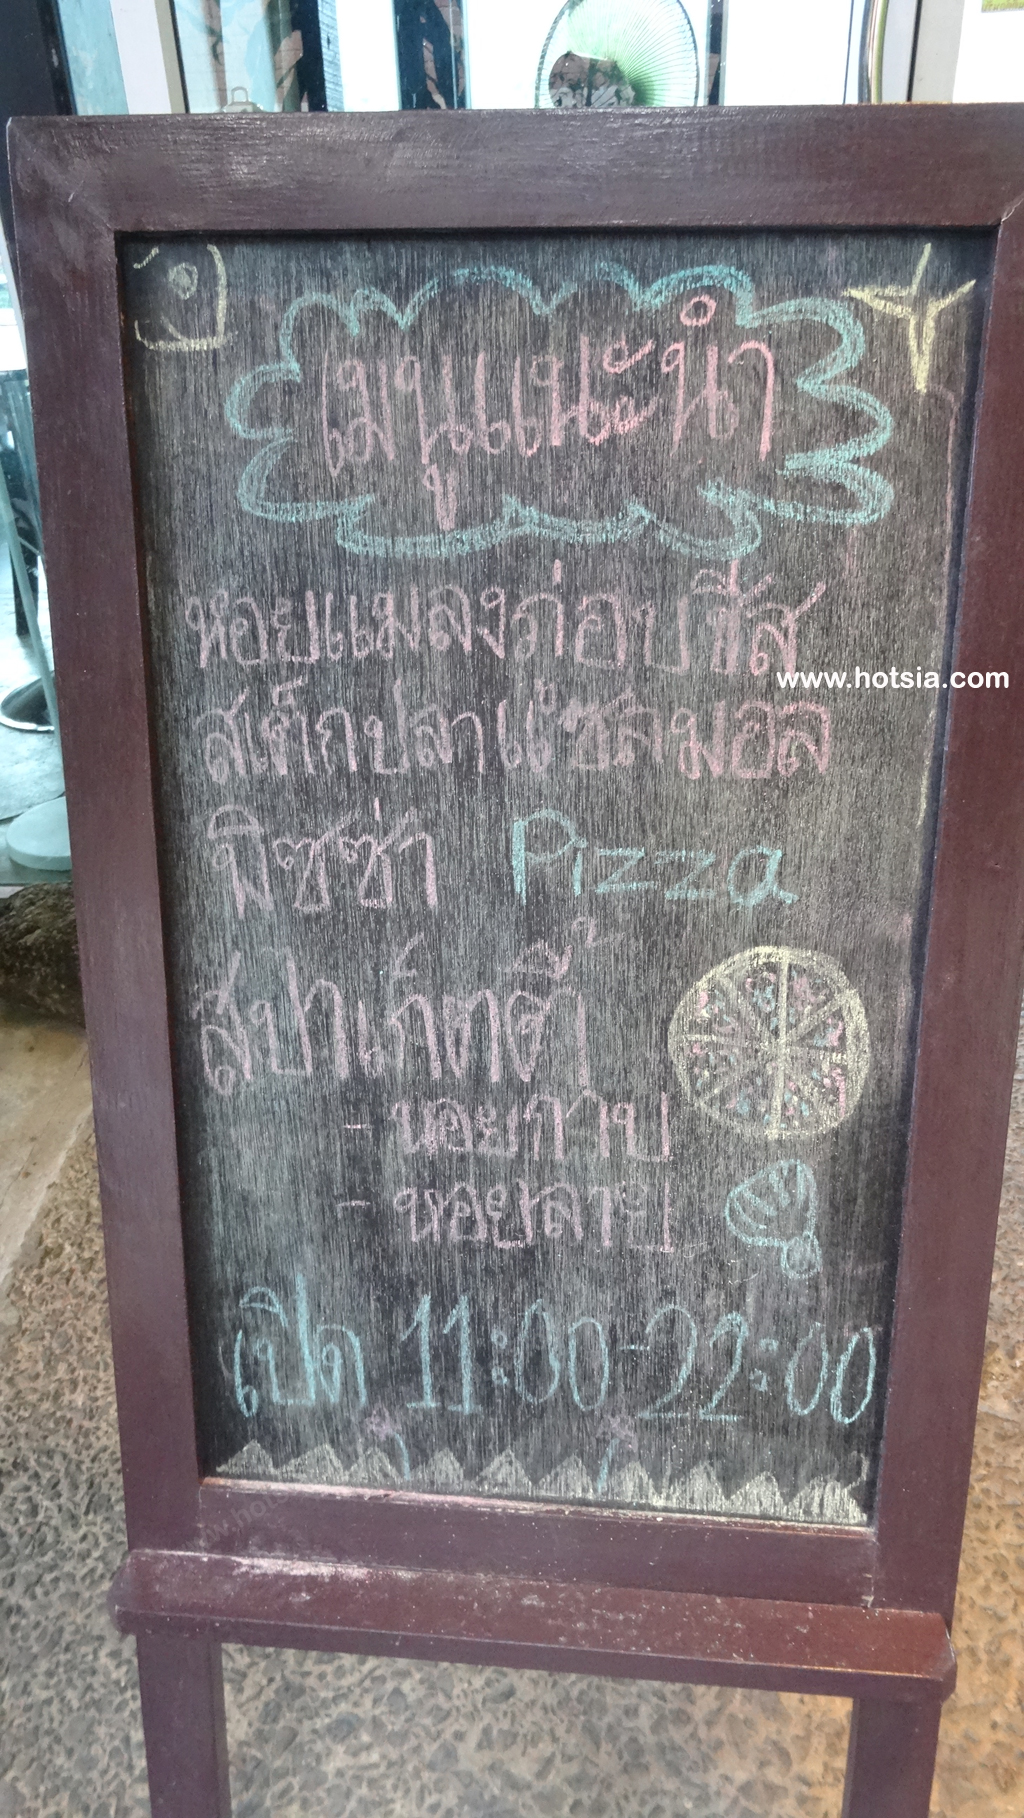 เมนูแนะนำ
หอยแมลงภ่อบชีส
www.hotsia.com
สเต็กปลาแซลมอล
พิซซ่า Pizza
สปาเก็ตตี้
- หอยกาบ
- หอยลาย
เปิด 11:00-22:00